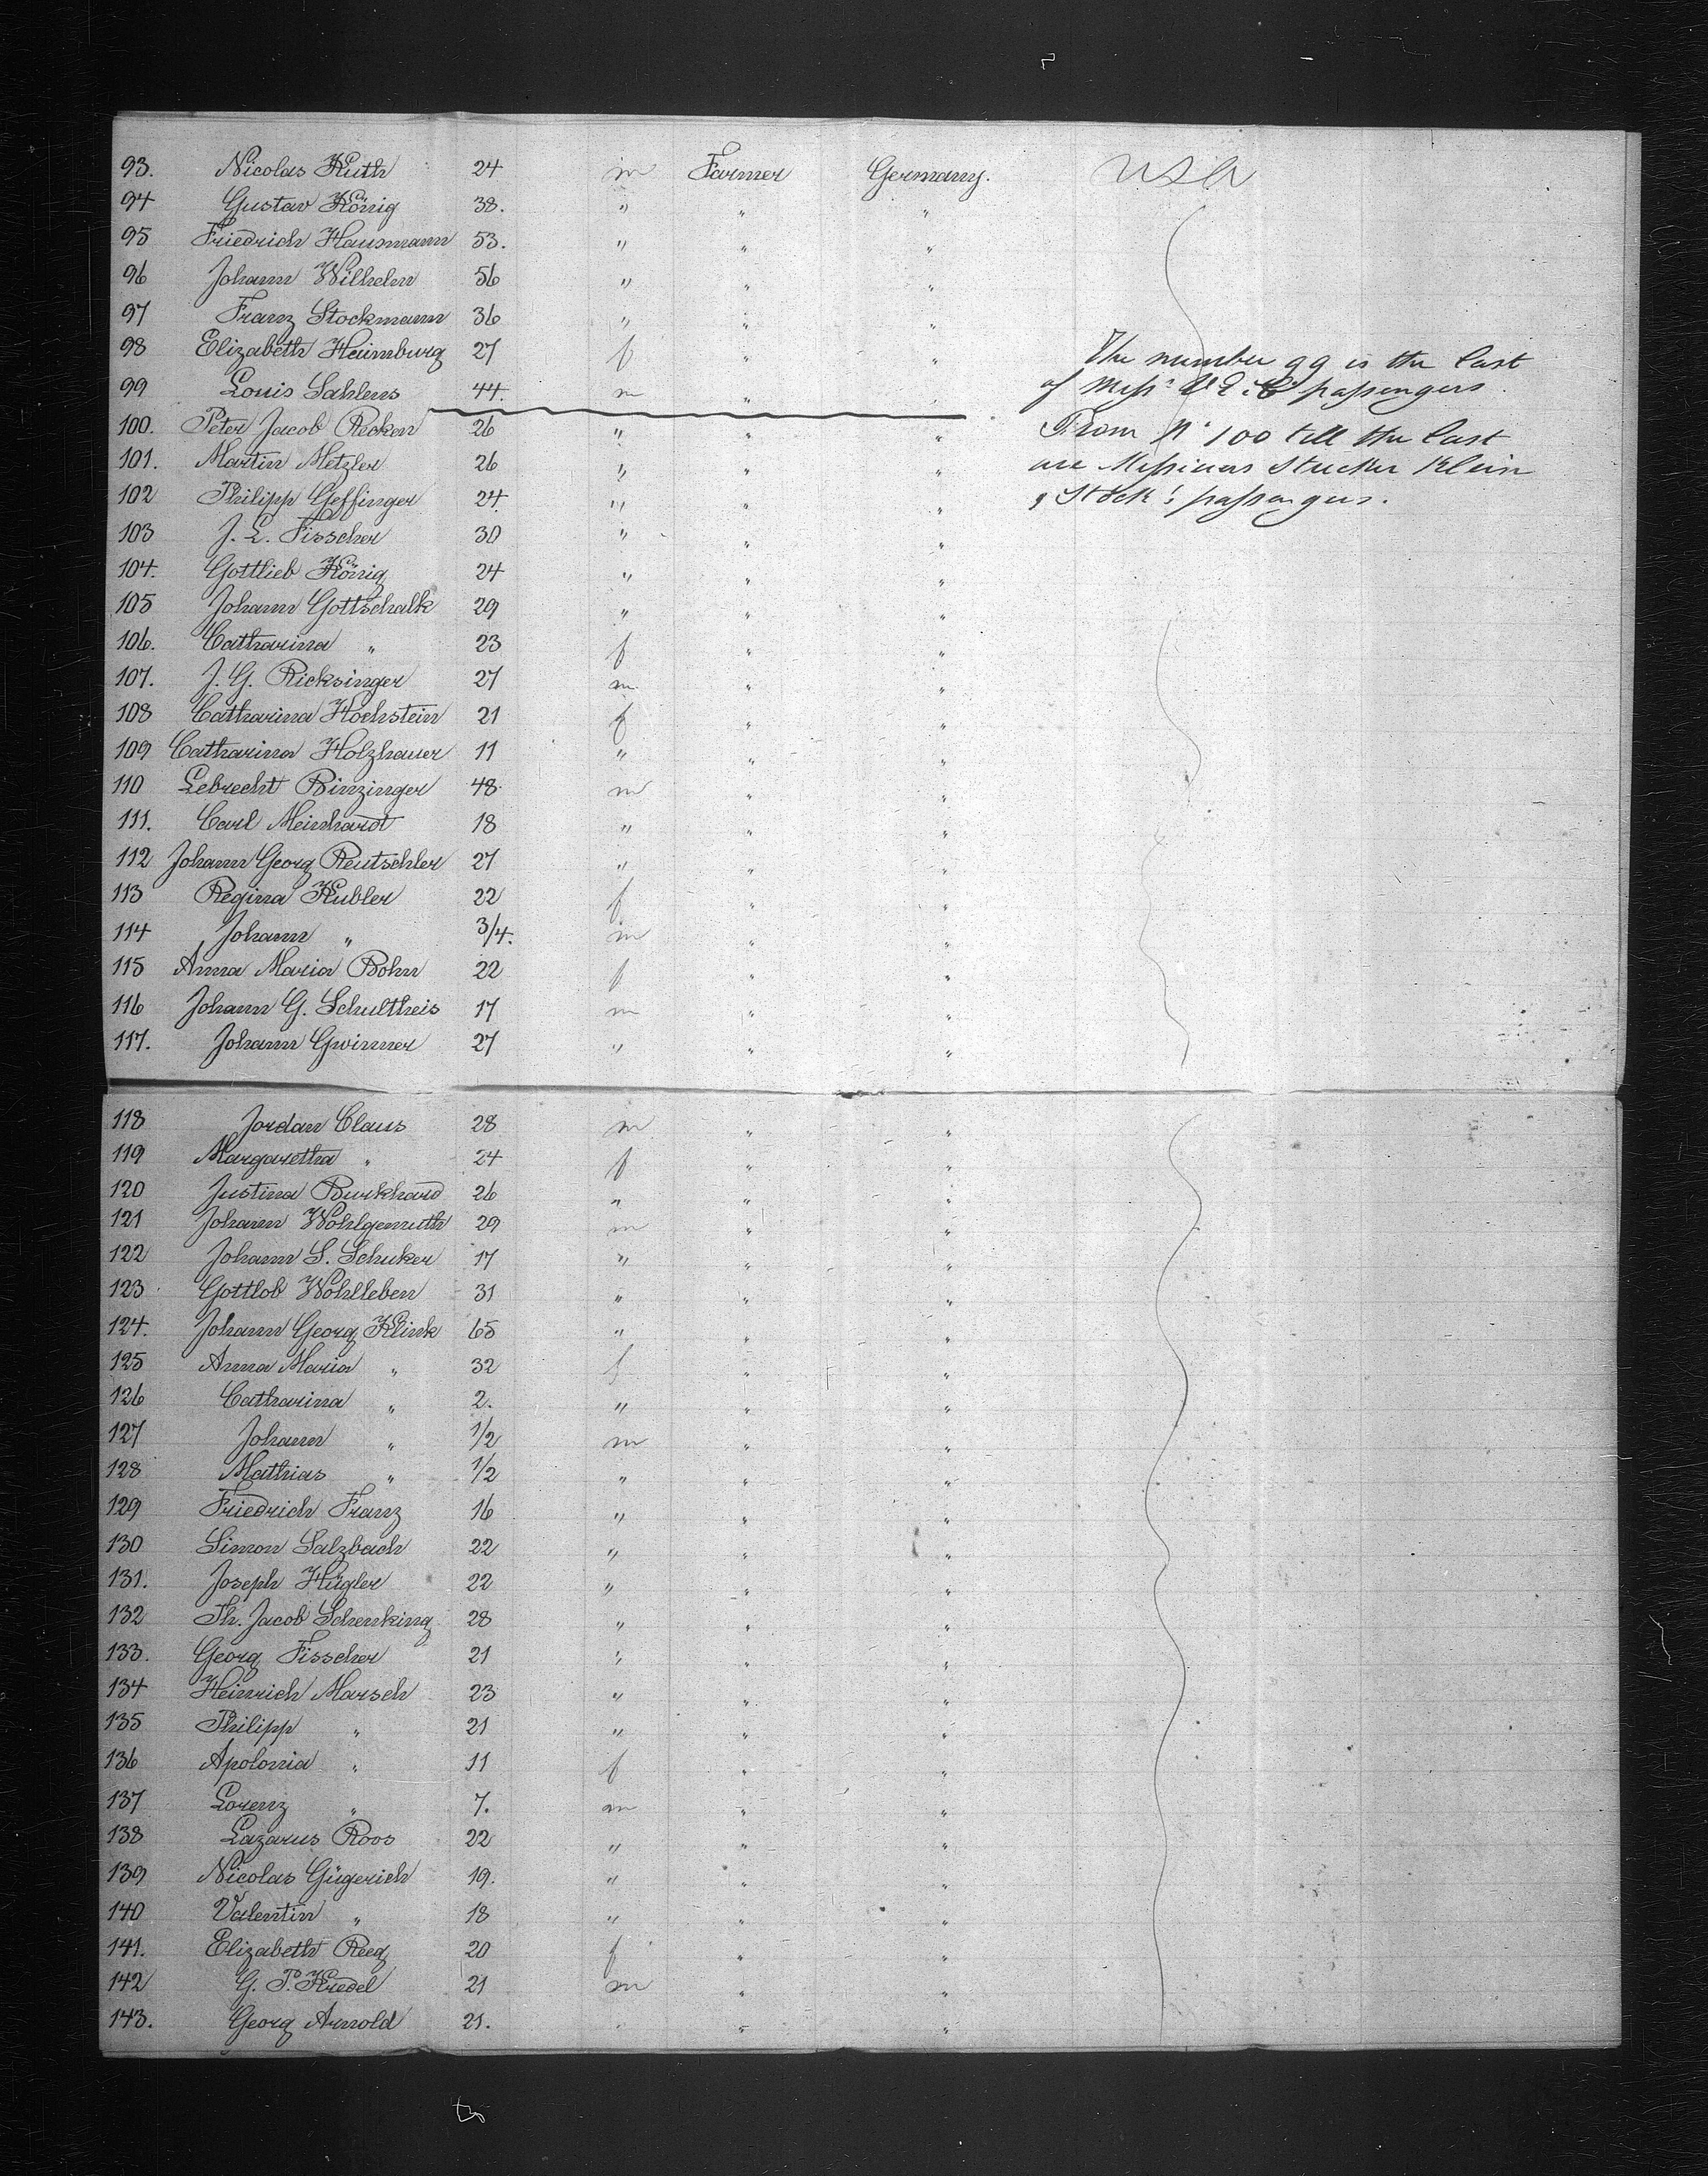 93. Nicolas Kuth 24 m Farmer Germany. USA
94 Gustav König 38. " " "
95 Friedrich Hausmann 53. " " "
96 Johann Wilhelm 56 " " "
97 Franz Stockmann 36 " " "
98 Elizabeth Heimburg 27 f " "
The number 99 is the last
99 Louis Sahlens 44. m " "
of Mess. passengers.
100. Peter Jacob Recken 26 " " "
From N. 100 till the last
101. Martin Metzler 26 " " "
are Messieurs Stucker Klein
102 Philipp Geffinger 24. " " "
& Stock's passengers.
103 J. L. Fisscher 30 " " "
104. Gottlieb König 24 " " "
105 Johann Gottschalk 29 " " "
106. Catharina " 23 f " "
107. J. G. Ricksinger 27 m " "
108 Catharina Hochstein 21 f " "
109 Catharina Holzhauer 11 " " "
110 Lebrecht Binzinger 48 m " "
111. Carl Meinhardt 18 " " "
112 Johann Georg Reutschler 27 " " "
113 Regina Kubler 22 f " "
114 Johann " 3/4. m " "
115 Anna Maria Bohn 22 f " "
116 Johann G. Schultheis 17 m " "
117. Johann Gwinner 27 " " "
118 Jordan Claus 28 m " "
119 Margaretha " 24 f " "
120 Justina Burkhard 26 " " "
121 Johann Wohlgemuth 29 m " "
122 Johann S. Schuker 17 " " "
123 Gottlob Wohlleben 31 " " "
124. Johann Georg Klink 65 " " "
125 Anna Maria " 32 f " "
126 Catharina " 2. " " "
127 Johann " 1/2 m " "
128 Mathias " 1/2 " " "
129 Friedrich Franz 16 " " "
130 Simon Salzbach 22 " " "
131. Joseph Hügler 22 " " "
132 Th. Jacob Schenking 28 " " "
133. Georg Fisscher 21 " " "
134 Heinrich Marsch 23 " " "
135 Philipp " 21 " " "
136 Apolonia " 11 f " "
137 Lorenz " 7. m " "
138 Lazarus Roos 22 " " "
139 Nicolas Gügerich 19. " " "
140 Valentin " 18 " " "
141. Elizabeth Reeg 20 f " "
142 G. P. Kredel 21 m " "
143. Georg Arnold 21. " " "